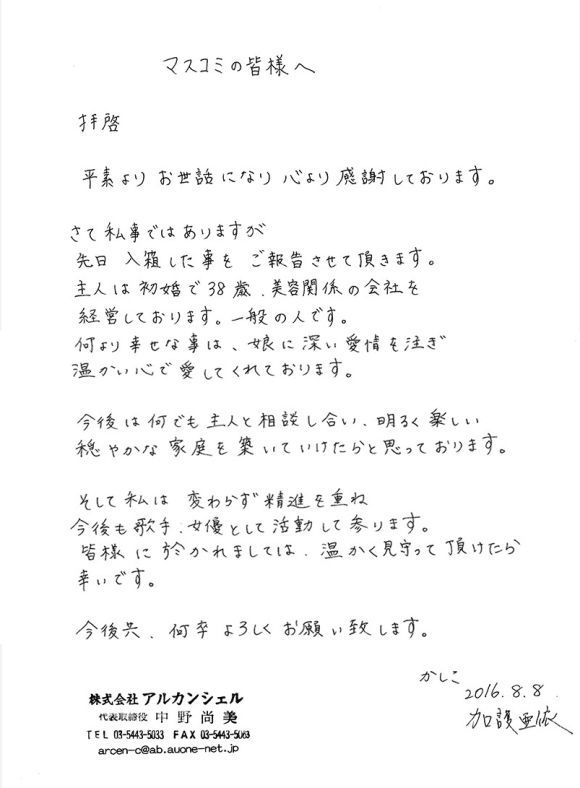 マスコミの皆様へ
拝啓
平素より お世話になり 心より 感謝しております。
さて 私事ではありますが
先日 入籍した事を ご報告させて頂きます。
主人は初婚で38歳、美容関係の会社を
経営しております。一般の人です。
何より幸せな事は、娘に深い愛情を注ぎ
温かい心で愛してくれております。
今後は何でも主人と相談し合い、明るく楽しい
穏やかな家庭を築いていけたらと思っております。
そして私は 変わらず精進を重ね
今後も歌手、女優として活動して参ります。
皆様に於かれましては、温かく見守って頂けたら
幸いです。
今後共、何卒よろしくお願い致します。
かしこ
2016.8.8
加護亜依
株式会社 アルカンシェル
代表取締役 中野尚美
TEL 03-5443-5033 FAX 03-5443-5063
arcen-c@ab.auone-net.jp